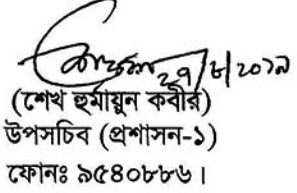 ২৭/৮/২০১৯
(শেখ হুমায়ুন কবীর)
উপসচিব (প্রশাসন-১)
ফোনঃ ৯৫৪০৮৮৬।